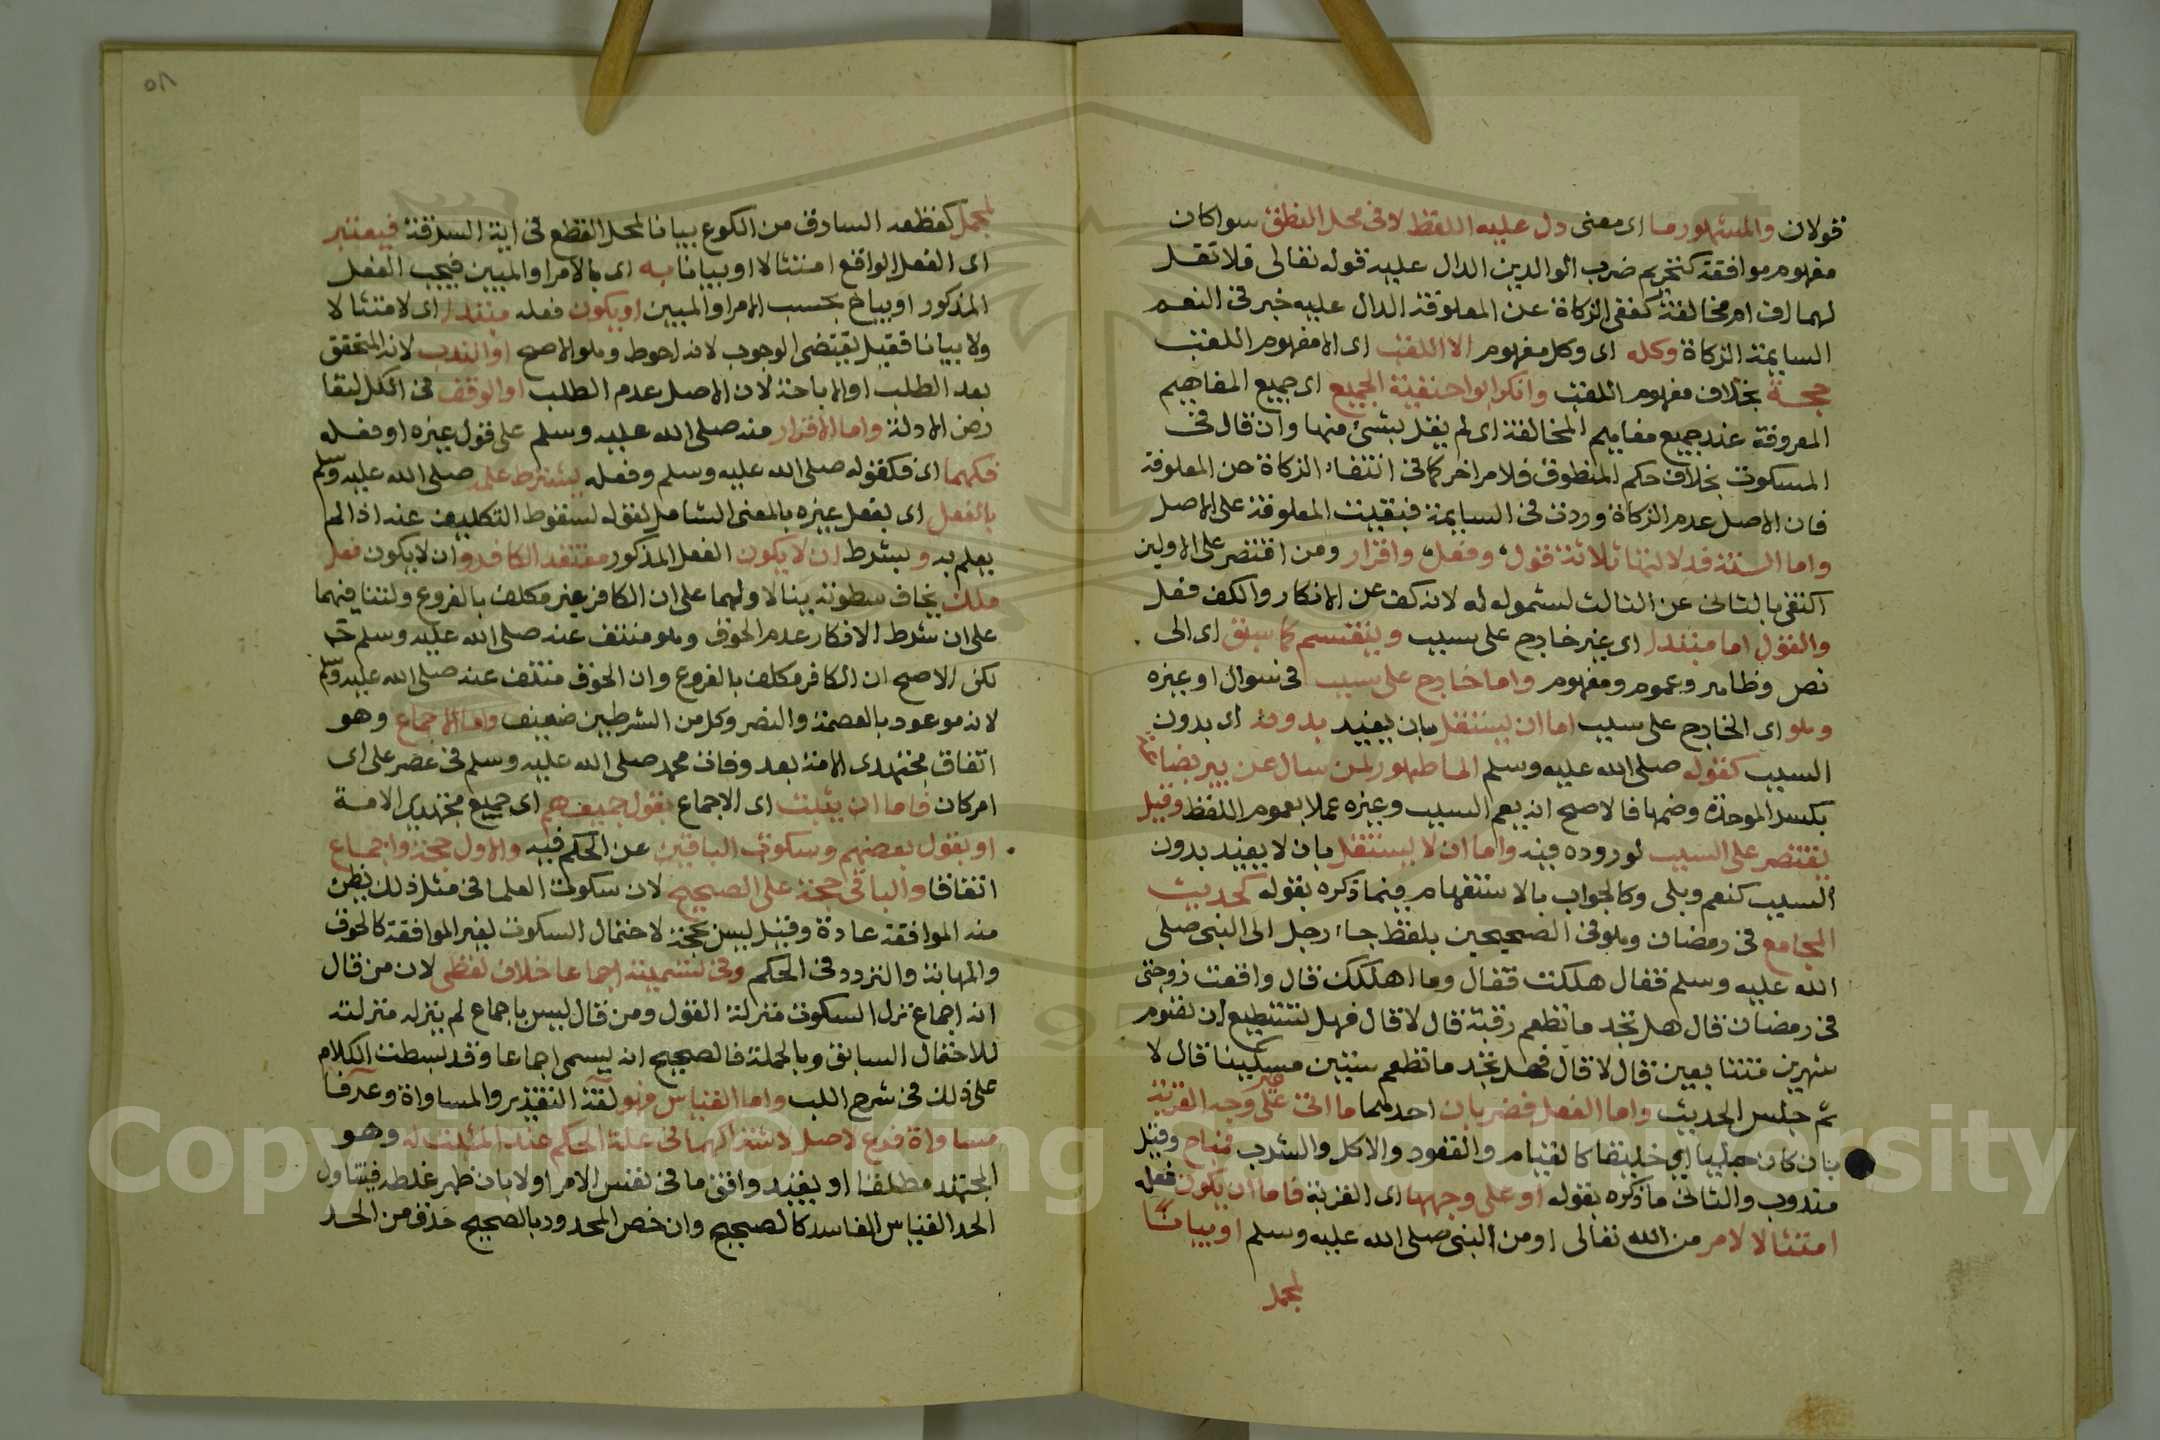 قولان والمشهور ما اى معنى دل عليه اللفظ لا فى محل النطق سوا كان
مفهوم موافقة كتحريم ضرب الوالدين الدال عليه قوله تعالى فلا تقل
لهما اف ام مخالفة كنفى الزكاة عن المعلوفة الدال عليه خبر فى النعم
السايمة الزكاة وكله اى وكل مفهوم الا اللقب اى الا مفهوم اللقب
حجة بخلاف مفهوم اللقب وانكر ابوا حنفية الجميع اى جميع المفاهيم
المعروفة عند جميع مفاهيم المخالفة اى لم يقل بشئ منها وان قال فى
المسكوت بخلاف حكم المنطوق فلامر اخر كما فى انتفاء الزكاة عن المعلوفة
فان الاصل عدم الزكاة وردت فى السايمة فبقيت المعلوفة على الاصل
واما السنة فدلالتها ثلاثة قول وفعل واقرار ومن اقتصر على الاولين
اكتفى بالثانى عن الثالث لشموله له لانه كف عن الانكار والكف فعل
والقول اما مبتدا اى غير خارج على سبب وينقسم كما سبق اى الى
نص وظاهر وعموم ومفهوم واما خارج على سبب فى سوال او غيره
وهو اى الخارج على سبب اما ان يستقل بان يفيد بدونه اى بدون
السبب كقوله صلى الله عليه وسلم الما طهور لمن سال عن بير بضاعة
بكسر الموحدة وضمها فالاصح انه يعم السبب وغيره عملا بعموم اللفظ وقيل
يقتصر على السبب لوروده فيه واما ان لا يستقل بان لا يفيد بدون
السبب كنعم وبلى وكالجواب بالاستفهام فيما ذكره بقوله كحديث
المجامع فى رمضان وهو فى الصحيحين بلفظ جاء رجل الى النبى صلى
الله عليه وسلم فقال هلكت فقال وما اهلكك قال واقعت زوجتى
فى رمضان قال هل تجد ما تطعم رقبة قال لا قال فهل تستطيع ان تقوم
شهرين متتابعين قال لا قال فهل تجد ما تطعم ستين مسكينا قال لا
ثم جلس الحديث واما الفعل فضربان احدهما ما اتى على غير وجه القربة
بان كان جبليا اى خليقا كالقيام والقعود والاكل والشرب فمباح وقيل
مندوب والثانى ما ذكره بقوله او على وجهها اى القربة فاما ان يكون فعله
امتثالا لامر من الله تعالى او من النبى صلى الله عليه وسلم او بيانا
لمجمل
لمجمل كقطعه السارق من الكوع بيانا لمحل القطع فى اية السرقة فيعتبر
اى الفعل الواقع امتثالا او بيانا به اى بالامر او المبين فيجب الفعل
المذكور او يباح بحسب الامر او المبين او يكون فعله مبتدا اى لا امتثالا
ولا بيانا فقيل يقتضى الوجوب لانه احوط وهو الاصح او الندب لانه المتحقق
بعد الطلب او الاباحة لان الاصل عدم الطلب او الوقف فى الكل لتعا
رض الادلة واما الاقرار منه صلى الله عليه وسلم على قول غيره او فعله
فكهما اى فكقوله صلى الله عليه وسلم وفعله بشرط علمه صلى الله عليه وسلم
بالفعل اى بفعل غيره بالمعنى الشامل لقوله لسقوط التكليف عنه اذا لم
يعلم به وبشرط ان لا يكون الفعل المذكور معتقد الكافر وان لا يكون فعل
ملك يخاف سطوته بنا لاولهما على ان الكافر غير مكلف بالفروع ولثانيهما
على ان شرط الانكار عدم الخوف وهو منتف عنه صلى الله عليه وسلم
لكن الاصح ان الكافر مكلف بالفروع وان الخوف منتف عنه صلى الله عليه وسلم
لانه موعود بالعصمة والنصر وكل من الشرطين ضعيف واما الاجماع وهو
اتفاق مجتهدى الامة بعد وفات محمد صلى الله عليه وسلم فى عصر على اى
امر كان فاما ان يثبت اى الاجماع بقول جميعهم اى جميع مجتهدى الامة
او بقول بعضهم وسكوت الباقين عن الحكم فيه والاول حجة واجماع
اتفاقا والباقى حجة على الصحيح لان سكوت العلما فى مثل ذلك يظن
منه الموافقة عادة وقيل ليس بحجة لاحتمال السكوت لغير الموافقة كالخوف
والمهابة والتردد فى الحكم وفى تسميته اجماعا خلاف لفظى لان من قال
انه اجماع نزل السكوت منزلة القول ومن قال ليس باجماع لم ينزله منزلته
للاحتمال السابق وبالجملة فالصحيح انه يسمى اجماعا وقد بسطت الكلام
على ذلك فى شرح اللب واما القياس فهو لغة التقدير والمساواة وعرفا
مساواة فرع لاصل لاشتراكهما فى علة الحكم عند المثبت له وهو
المجتهد مطلقا او بقيد وافق ما فى نفس الامر اولا بان ظهر غلطه فيتناول
الحد القياس الفاسد كالصحيح وان خص المحدود بالصحيح حذف من الحد
Copyright © King Saud University